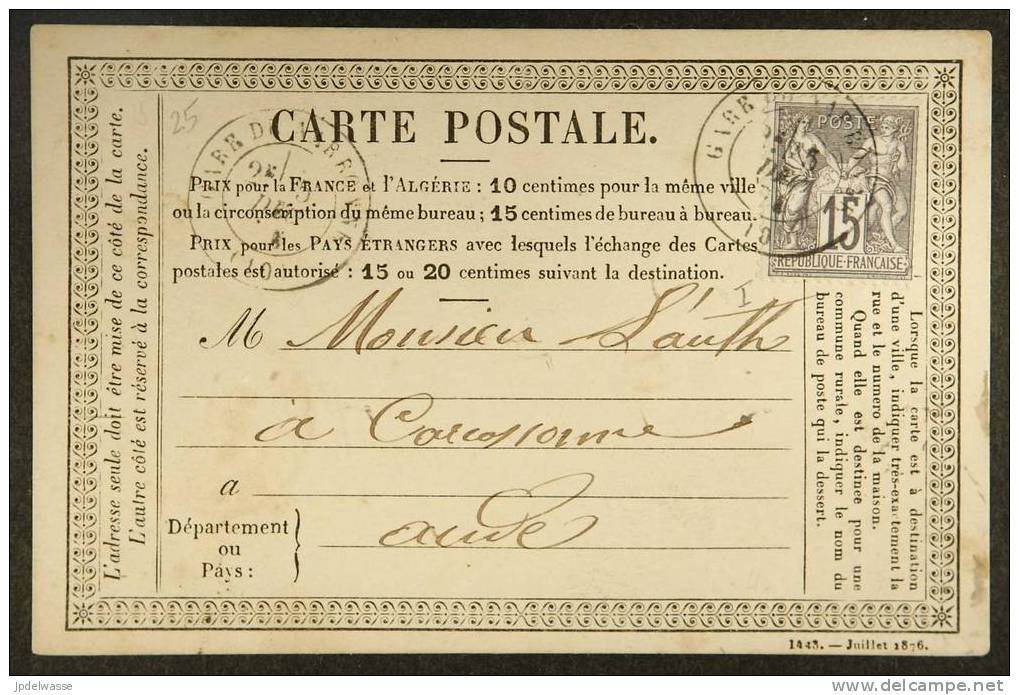 25
CARTE POSTALE.
PRIX pour la FRANCE et l'ALGÉRIE : 10 centimes pour la même ville
ou la circonscription du même bureau ; 15 centimes de bureau à bureau.
PRIX pour les PAYS ÉTRANGERS avec lesquels l'échange des Cartes
postales est autorisé : 15 ou 20 centimes suivant la destination.
GARE DE
(10)
GARE
POSTE
15
REPUBLIQUE·FRANCAISE
I
M Monsieur Lauth
à Carcassonne
a
Département
ou
Pays :
aude
L'adresse seule doit être mise de ce côté de la carte.
L'autre côté est réservé à la correspondance.
Lorsque la carte est à destination
d'une ville, indiquer très-exactement la
rue et le numero de la maison.
Quand elle est destinée pour une
commune rurale, indiquer le nom du
bureau de poste qui la dessert.
1443. — Juillet 1876.
jpdelwasse
delcampe.net